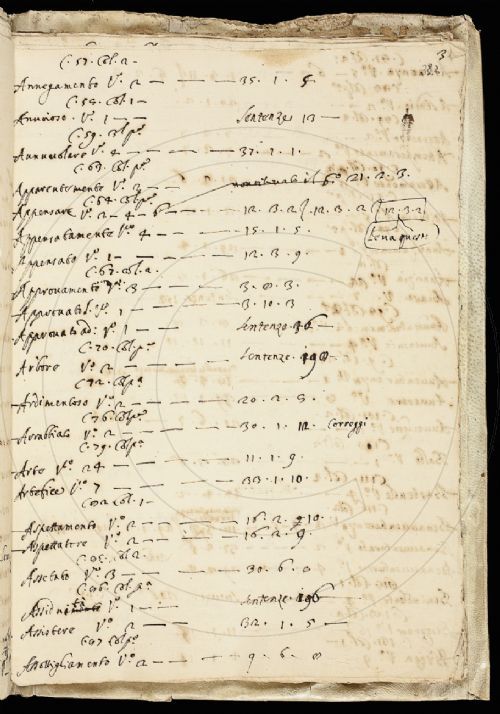 3
282
C. 57. Col. 2.
Annegamento V.º 2 — — — 35. 1. 5
C. 58. Col. 1 —
Annuoso. V.º 1 — — Sentenze 13 —
C. 59. Col. pª.
Annuvolare V.º 4 — — — 37. 1. 1.
C. 63. Col. pª.
Apparentemento V.º 3 — 21. 2. 3.
C. 64. Col. pª.
Appensare V.º 2 — 4 — 6 — — 12. 3. 2 12. 3. 2 12. 3. 2
Appensatamente V.º 4 — — — 15. 1. 5.
Appensato V.º 1 — — — 12. 3. 9.
C. 67. Col. 2.
Approvamento V.º 3 — — 3. 0. 3.
V.º 1 — — — 3. 10. 3
V.º 1 — — Sentenze 16 —
C. 70. Col. pª.
Arbore V.º 2 — — — Sentenze. 190 —
C. 72. Col. pª
Ardimentoso V.º 2 — — — 20. 2. 3.
C. 76. Col. pª.
Arrabbiato V.º 2 — — — 30. 1. 12. Correggi
C. 79. Col. pª.
Arte V.º 24 — — — 11. 1. 9.
Artefice V.º 7 — — — 33. 1. 10.
C. 82 Col. 1 —
Aspettamento V.º 2 — — — 16. 2. 10.
Aspettatore V.º 2 — — — 16. 2. 9.
C. 85. Col. 2.
Assento V.º 3 — — — 30. 6. 0
C. 86. Col. pª
V.º 1 — — Sentenze. 196 —
Assistere V.º 2 — — — 32. 1. 5 —
C. 87 Col. pª.
Assottigliamento V.º 2 — — — 9. 6. 0